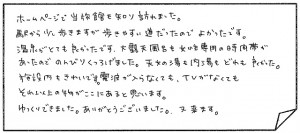 ホームページで当旅館を知り訪れました。
駅から少し歩きますが歩きやすい道だったのでよかったです。
温泉がとても良かったです。大露天風呂も女性専用の時間帯が
あったのでのんびりくつろげました。天女の湯も内湯もどれも良かった。
館内もきれいです。電波が入らなくても、TVがなくても
それ以上の物がここにあると思います。
ゆっくりできました。ありがとうございました。又来ます。